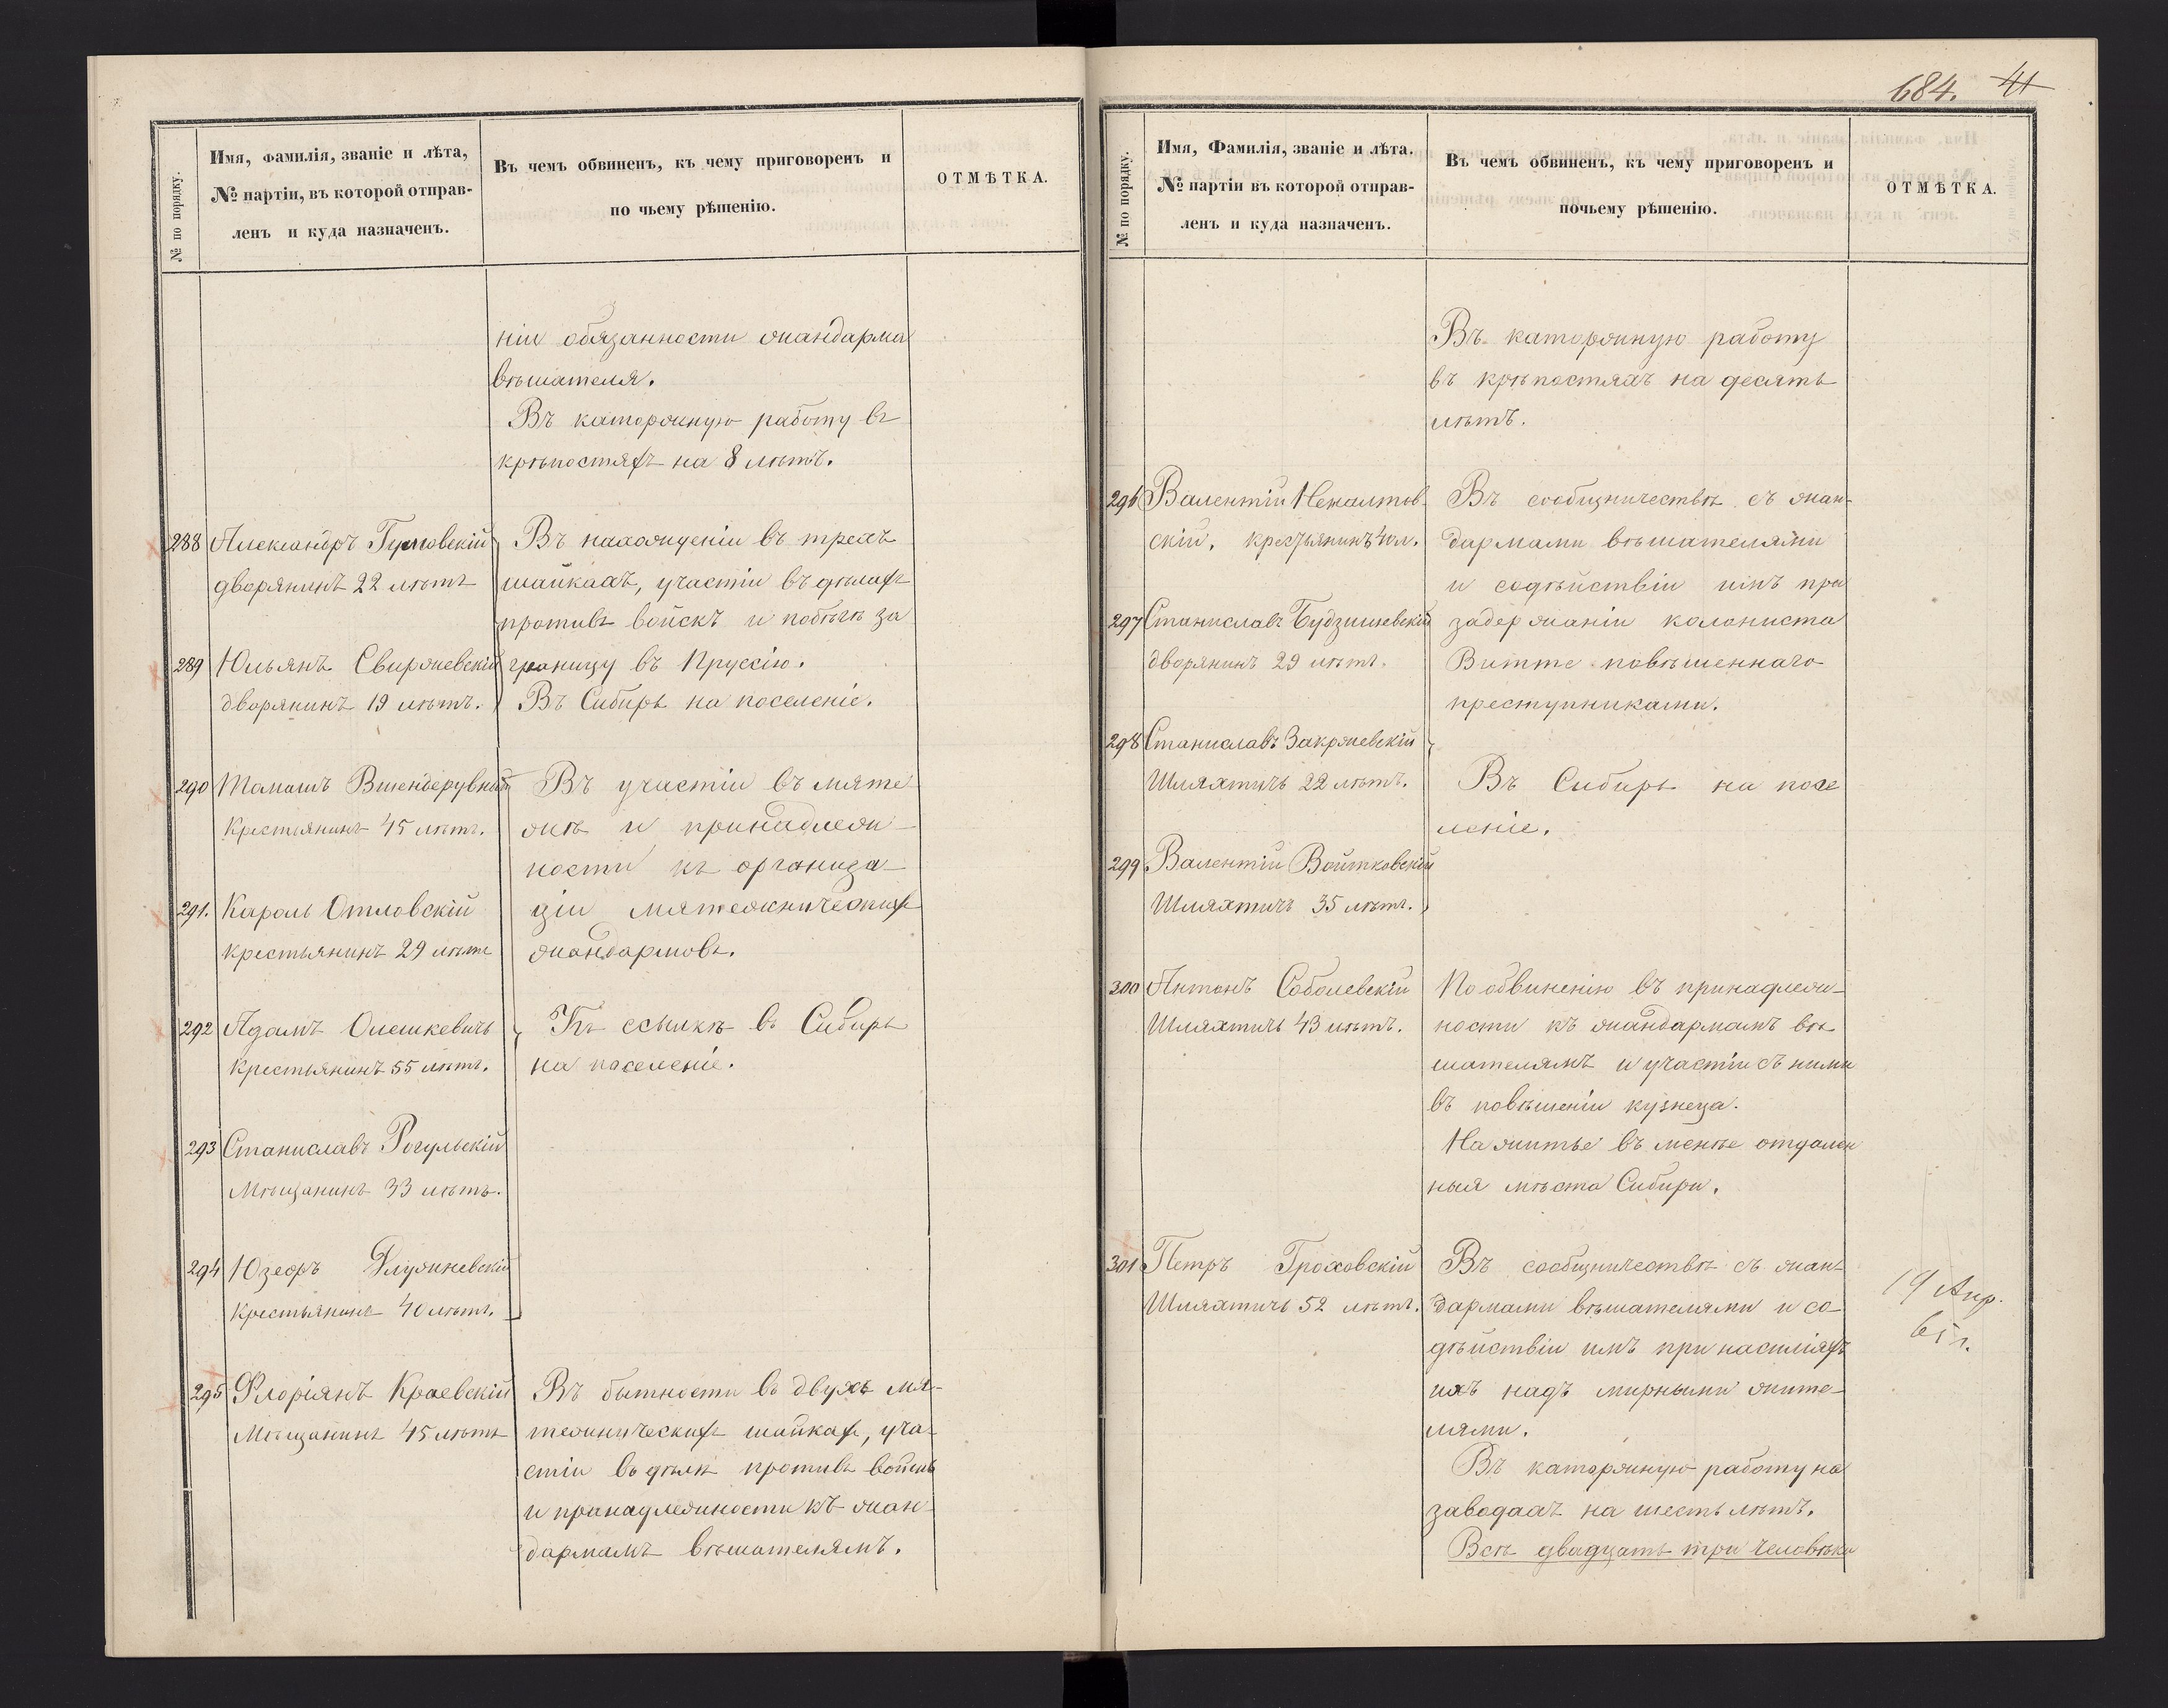 684. 41
№ по порядку.
Имя, фамилія, званіе и лѣта,
№ партіи, въ которой отправ-
ленъ и куда назначенъ.
Въ чемъ обвиненъ, къ чему приговоренъ и
по чьему рѣшенію.
ОТМѢТКА.
ніи обязанности жандарма
вѣшателя.
Въ каторжную работу въ
крѣпостяхъ на 8 лѣтъ.
288 Александръ
дворянинъ 22 лѣтъ
Въ нахожденіи въ трехъ
шайкахъ, участіи въ дѣлахъ
противъ войскъ и побѣгѣ за
289 Юльянъ Свиржевскій
дворянинъ 19 лѣтъ.
границу въ Пруссію.
Въ Сибирь на поселеніе.
290 Томашъ
Крестьянинъ 45 лѣтъ.
Въ участіи въ мяте
жѣ и принадлеж-
ности къ организа-
291. Кароль Отловскій
крестьянинъ 29 лѣтъ
ціи мятежническихъ
жандармовъ.
292 Адамъ Олешкевичъ
Крестьянинъ 55 лѣтъ.
Къ ссылкѣ въ Сибирь
на поселеніе.
293 Станиславъ Рогульскій
Мѣщанинъ 33 лѣтъ.
294 Юзефъ Флужневскій
Крестьянинъ 40 лѣтъ.
295 Флоріянъ Краевскій
Мѣщанинъ 45 лѣтъ
Въ бытности въ двухъ мя-
тежническихъ шайкахъ, уча-
стіи въ дѣлѣ противъ войскъ
и принадлежности къ жан-
дармамъ вѣшателямъ.
№ по порядку.
Имя, Фамилія, званіе и лѣта.
№ партіи въ которой отправ-
ленъ и куда назначенъ.
Въ чемъ обвиненъ, къ чему приговоренъ и
почьему рѣшенію.
ОТМѢТКА.
Въ каторжную работу
въ крѣпостяхъ на десять
лѣтъ.
296 Валентій Нежалтов-
скій, крестьянинъ 40 л.
Въ сообщничествѣ съ жан-
дармами вѣшателями
и содѣйствіи имъ при
297 Станиславъ Будзишевскій
дворянинъ 29 лѣтъ.
задержаніи колониста
Витте повѣшеннаго
преступниками.
298 Станиславъ Закржевскій
Шляхтичъ 22 лѣтъ.
Въ Сибирь на посе
леніе.
299 Валентій Войтковскій
Шляхтичъ 35 лѣтъ.
300 Антонъ Соболевскій
Шляхтичъ 43 лѣтъ.
По обвиненію въ принадлеж-
ности къ жандармамъ вѣ
шателямъ и участіи съ ними
въ повѣшеніи кузнеца.
На житье въ менѣе отдален
ныя мѣста Сибири.
301 Петръ Гроховскій
Шляхтичъ 52 лѣтъ.
Въ сообщничествѣ съ жан-
дармами вѣшателями и со-
дѣйствіи имъ при насиліяхъ
ихъ надъ мирными жите-
лями.
Въ каторжную работу на
заводахъ на шесть лѣтъ.
Всѣ двадцать три человѣка
19 Апр.
65 г.